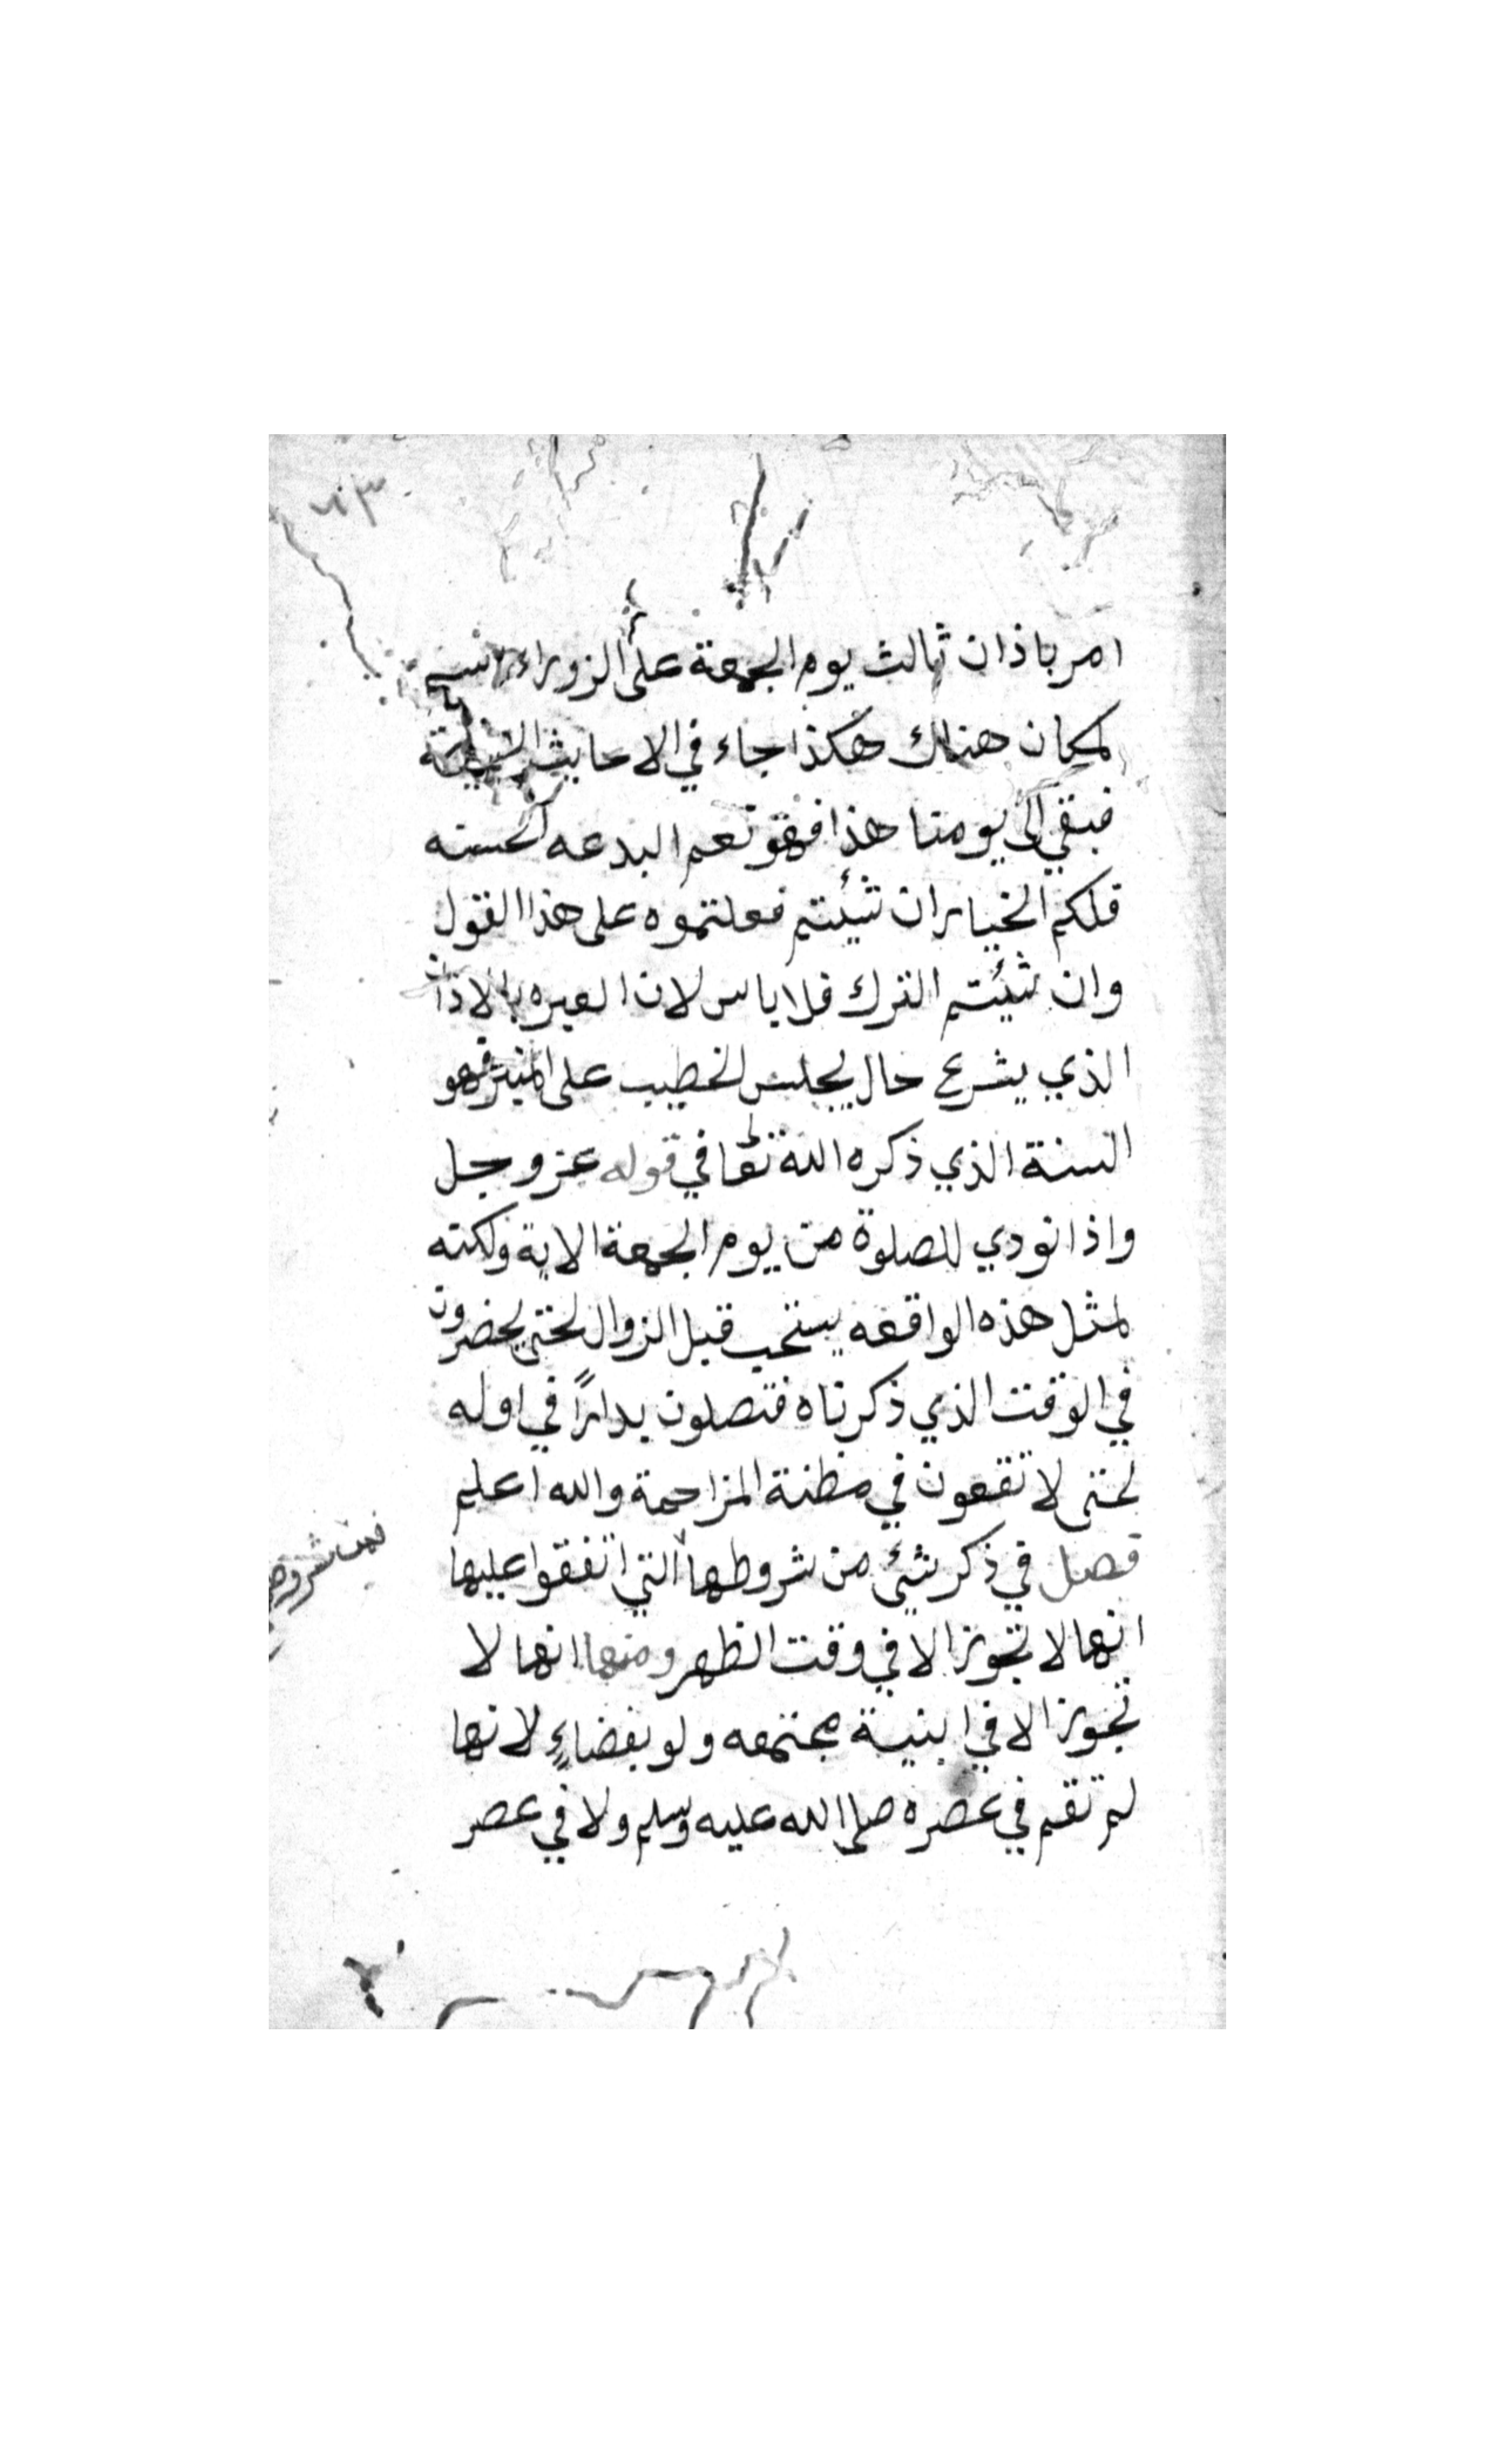 ٦٣
امر باذان ثالث يوم الجمعة على الزوراء اسم
لمكان هناك هكذا جاء في الاحاديث
فبقي الى يومنا هذا فهو نعم البدعه الحسنه
فلكم الخيار ان شئتم فعلتموه على هذا القول
وان شئتم الترك فلا باس لان العبره بالاذان
الذي يشرع حال يجلس الخطيب على المنبر فهو
السنة الذي ذكره الله تعا في قوله عز وجل
واذا نودي للصلوة من يوم الجمعة الاية ولكنه
لمثل هذه الواقعه يستحب قبل الزوال لحتى يحضرون
في الوقت الذي ذكرناه فتصلون بدارًا في اوله
لحتى لا تقعون في مظنة المزاحمة والله اعلم
فصل في ذكر شئ من شروطها التي اتفقوا عليها
انها لا تجوز الا في وقت الظهر ومنها انها لا
تجوز الا في ابنية مجتمعه ولو بفضاءٍ لانها
لم تقم في عصره صلى الله عليه وسلم ولا في عصر